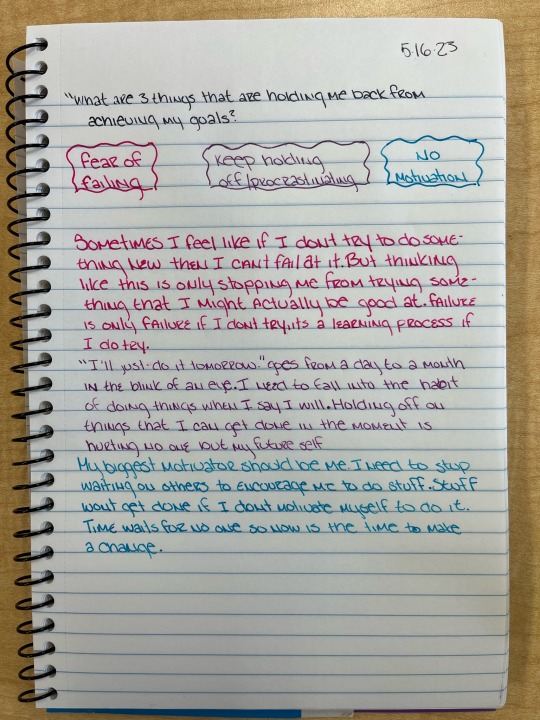 5·16·23
"What are 3 things that are holding me back from
achieving my goals?
fear of
failing
Keep holding
off/procrastinating
NO
Motivation
Sometimes I feel like if I dont try to do some-
thing new then I cant fail at it. But thinking
like this is only stopping me from trying some-
thing that I might actually be good at. failure
is only failure if I dont try, its a learning process if
I do try.
"I'll just do it tomorrow." goes from a day to a month
in the blink of an eye. I need to fall into the habit
of doing things when I say I will. Holding off on
things that I can get done in the moment is
hurting no one but my future self
My biggest motivator should be me. I need to stop
waiting on others to encourage me to do stuff. Stuff
wont get done if I dont motivate myself to do it.
Time waits for no one so now is the time to make
a change.